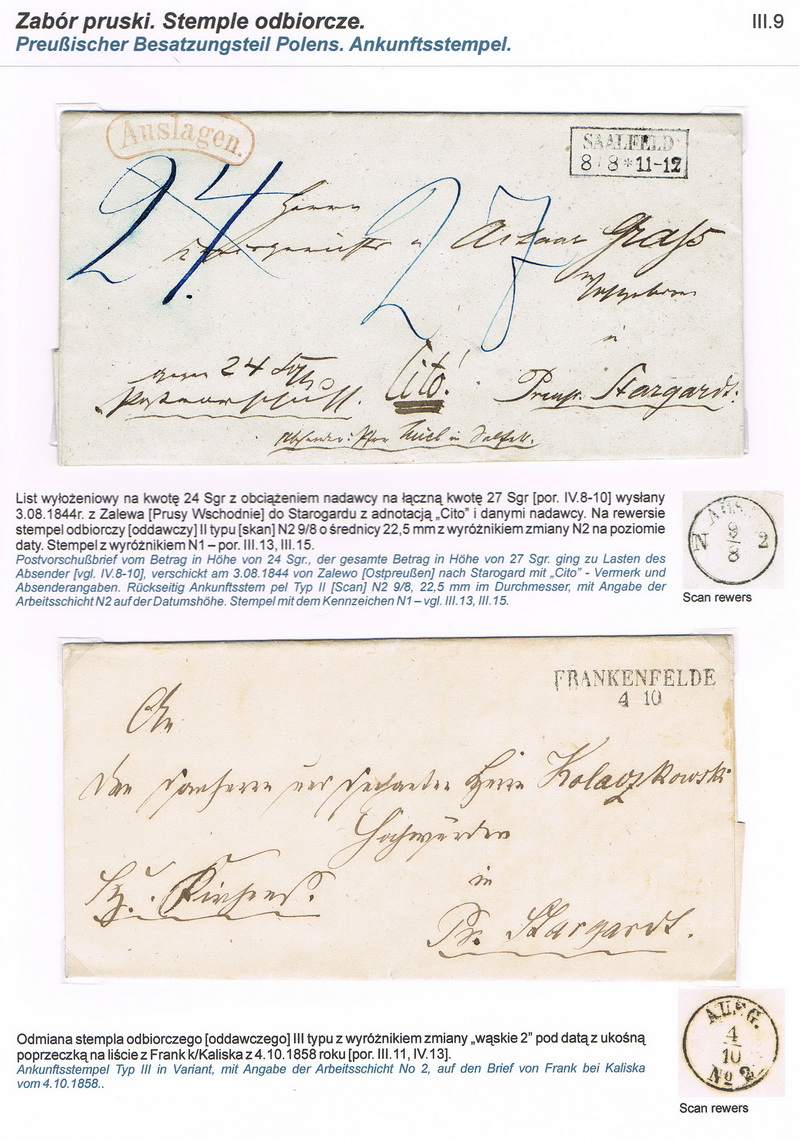 Zabór pruski. Stemple odbiorcze.
III.9
Preußischer Besatzungsteil Polens. Ankunftsstempel.
Auslagen.
SAALFELD
8 8 * 11-12
24
27
Herrn
Grass
in
24
Cito!
Preuß. Stargardt.
List wyłożeniowy na kwotę 24 Sgr z obciążeniem nadawcy na łączną kwotę 27 Sgr [por. IV.8-10] wysłany
3.08.1844r. z Zalewa [Prusy Wschodnie] do Starogardu z adnotacją „Cito” i danymi nadawcy. Na rewersie
stempel odbiorczy [oddawczy] II typu [skan] N2 9/8 o średnicy 22,5 mm z wyróżnikiem zmiany N2 na poziomie
daty. Stempel z wyróżnikiem N1 – por. III.13, III.15.
Postvorschußbrief vom Betrag in Höhe von 24 Sgr., der gesamte Betrag in Höhe von 27 Sgr. ging zu Lasten des
Absender [vgl. IV.8-10], verschickt am 3.08.1844 von Zalewo [Ostpreußen] nach Starogard mit „Cito” - Vermerk und
Absenderangaben. Rückseitig Ankunftsstem pel Typ II [Scan] N2 9/8, 22,5 mm im Durchmesser, mit Angabe der
Arbeitsschicht N2 auf der Datumshöhe. Stempel mit dem Kennzeichen N1 – vgl. III.13, III.15.
N 9/8 2
Scan rewers
FRANKENFELDE
4 10
An
Herrn Kolaczkowski
Hochwürden
in
Pr. Stargardt.
Odmiana stempla odbiorczego [oddawczego] III typu z wyróżnikiem zmiany „wąskie 2” pod datą z ukośną
poprzeczką na liście z Frank k/Kaliska z 4.10.1858 roku [por. III.11, IV.13].
Ankunftsstempel Typ III in Variant, mit Angabe der Arbeitsschicht No 2, auf den Brief von Frank bei Kaliska
vom 4.10.1858..
AUSG.
4
10
No 2
Scan rewers